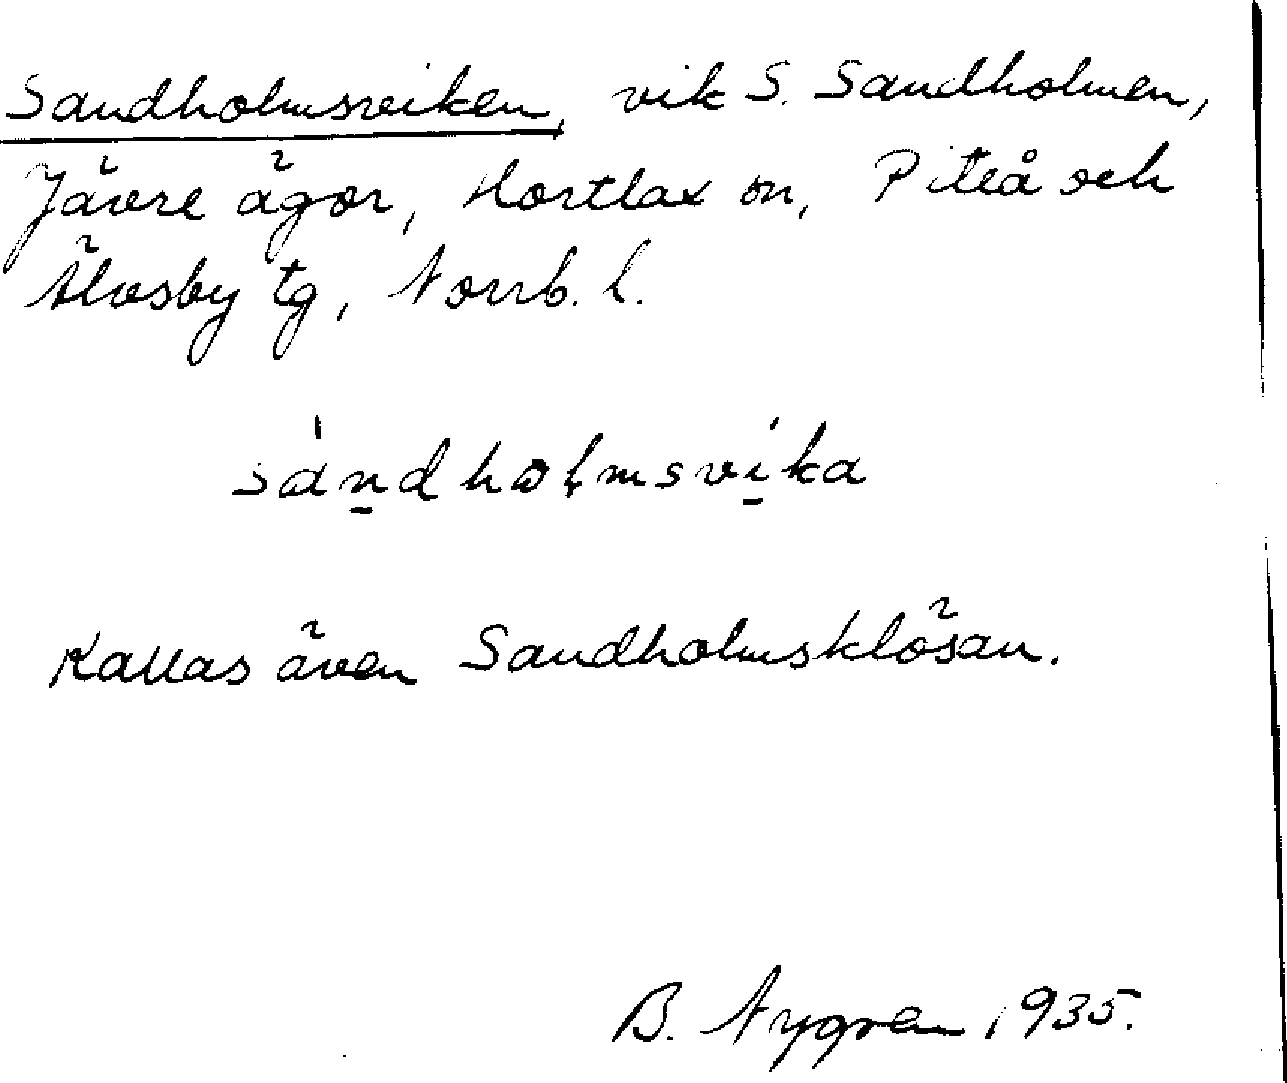 Sandholmsviken, vik S. Sandholmen,
Jävre ägor, Hortlax sn, Piteå och
Älvsby tg, Norrb. l.
sándhoḷmsvi̱ka
Kallas även Sandholmsklösan.
B. Nygren 1935.